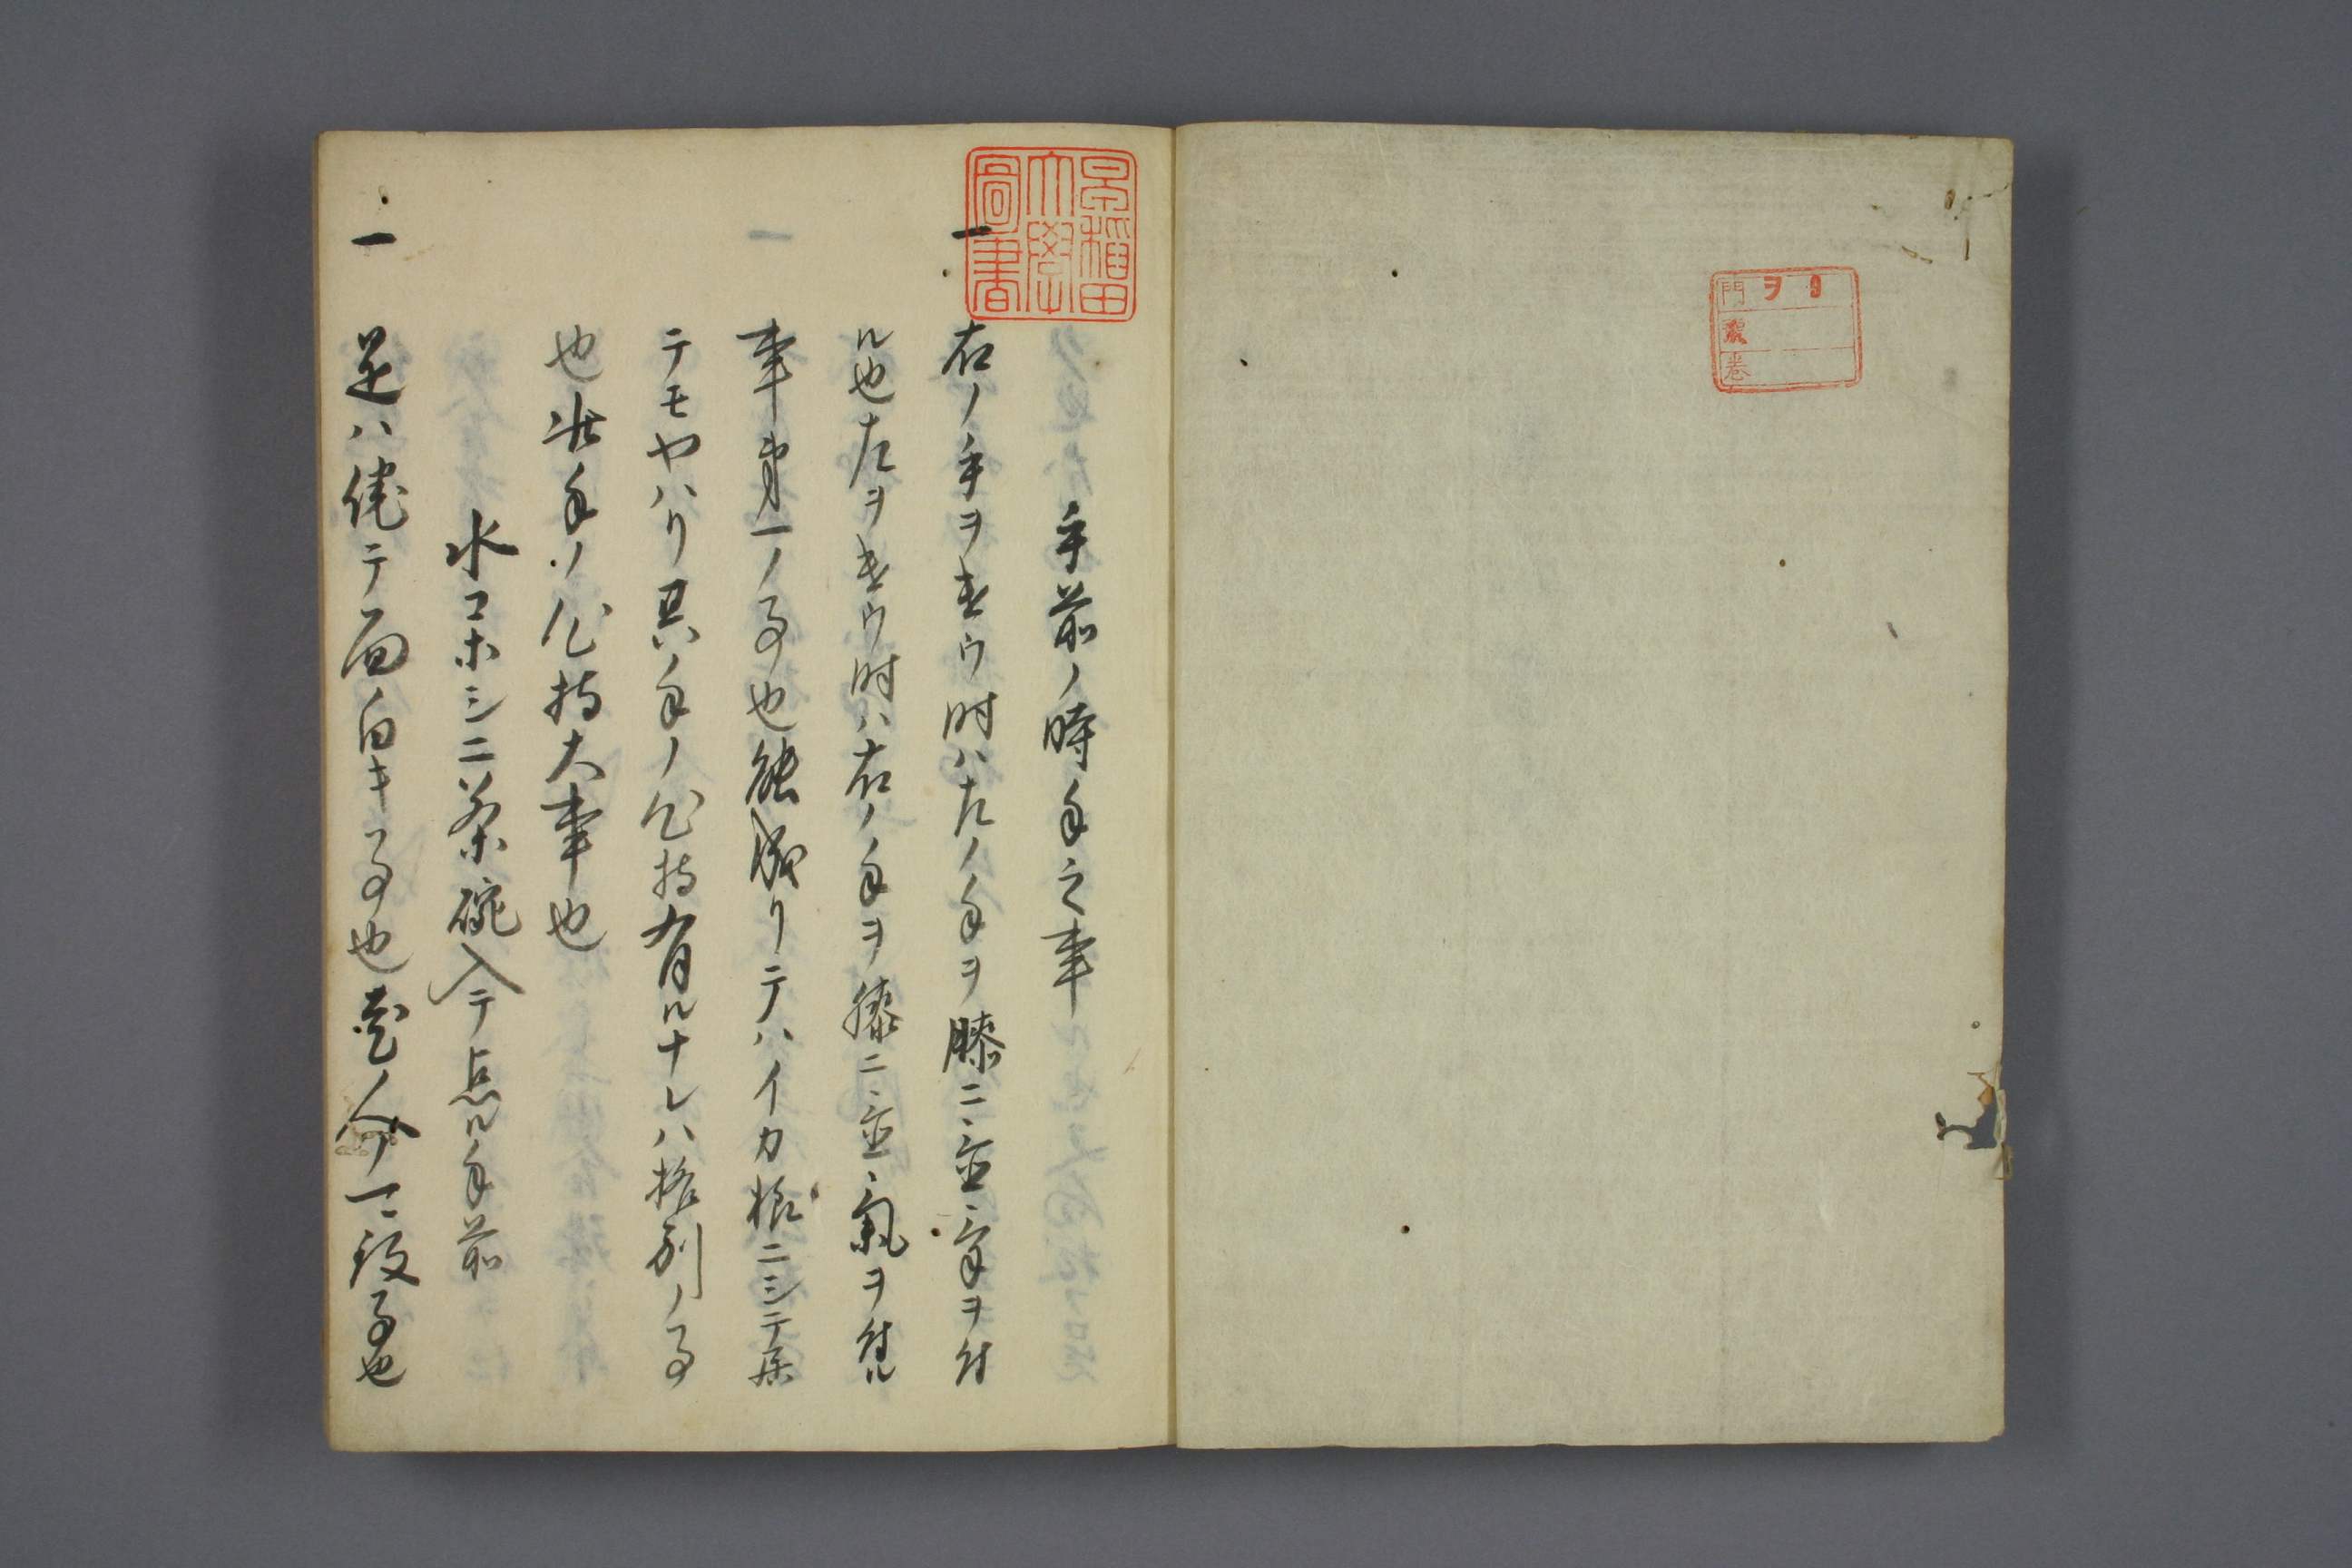 手前ノ時手之事
一 右ノ手ヲ遣ウ時ハ左ノ手ヲ膝ニ置氣ヲ付
ル也左ヲ遣ウ時ハ右ノ手ヲ膝ニ置氣ヲ付ル
事第一ノ事也能成リテハイカ様ニシテ居
テモヤハリ其ノ手ノ心持有ルナレハ格別ノ事
也此手ノ心持大事也
水コホシニ茶碗入テ点ル手前
一 是ハ侘テ面白キ事也老人ノ一段事也
早稲田大學圖書
門 ヲ 9
號
巻